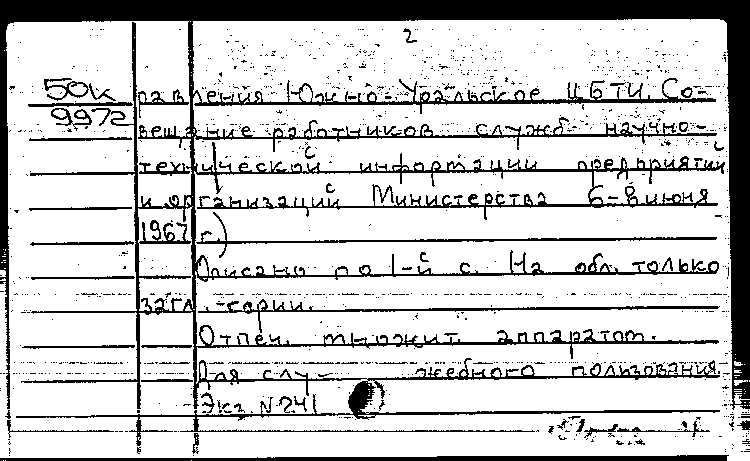 2
50к равления Южно-Уральское ЦБТИ. Со-
9972 вещание работников служб научно-
технической информации предприятий
и организаций Министерства 6-8 июня
1967 г.)
Описано по 1-й с. На обл. только
загл. серии.
Отпеч. множит. аппаратом.
Для слу- жебного пользования
Экз. № 241